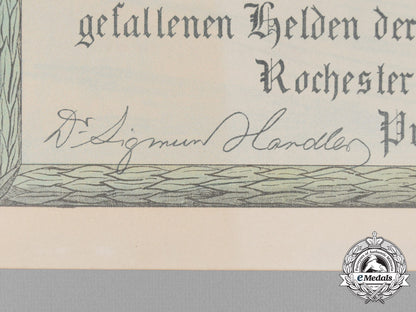 gefallenen Helden der
Rochester
Dr. Sigmund Handler
eMedals